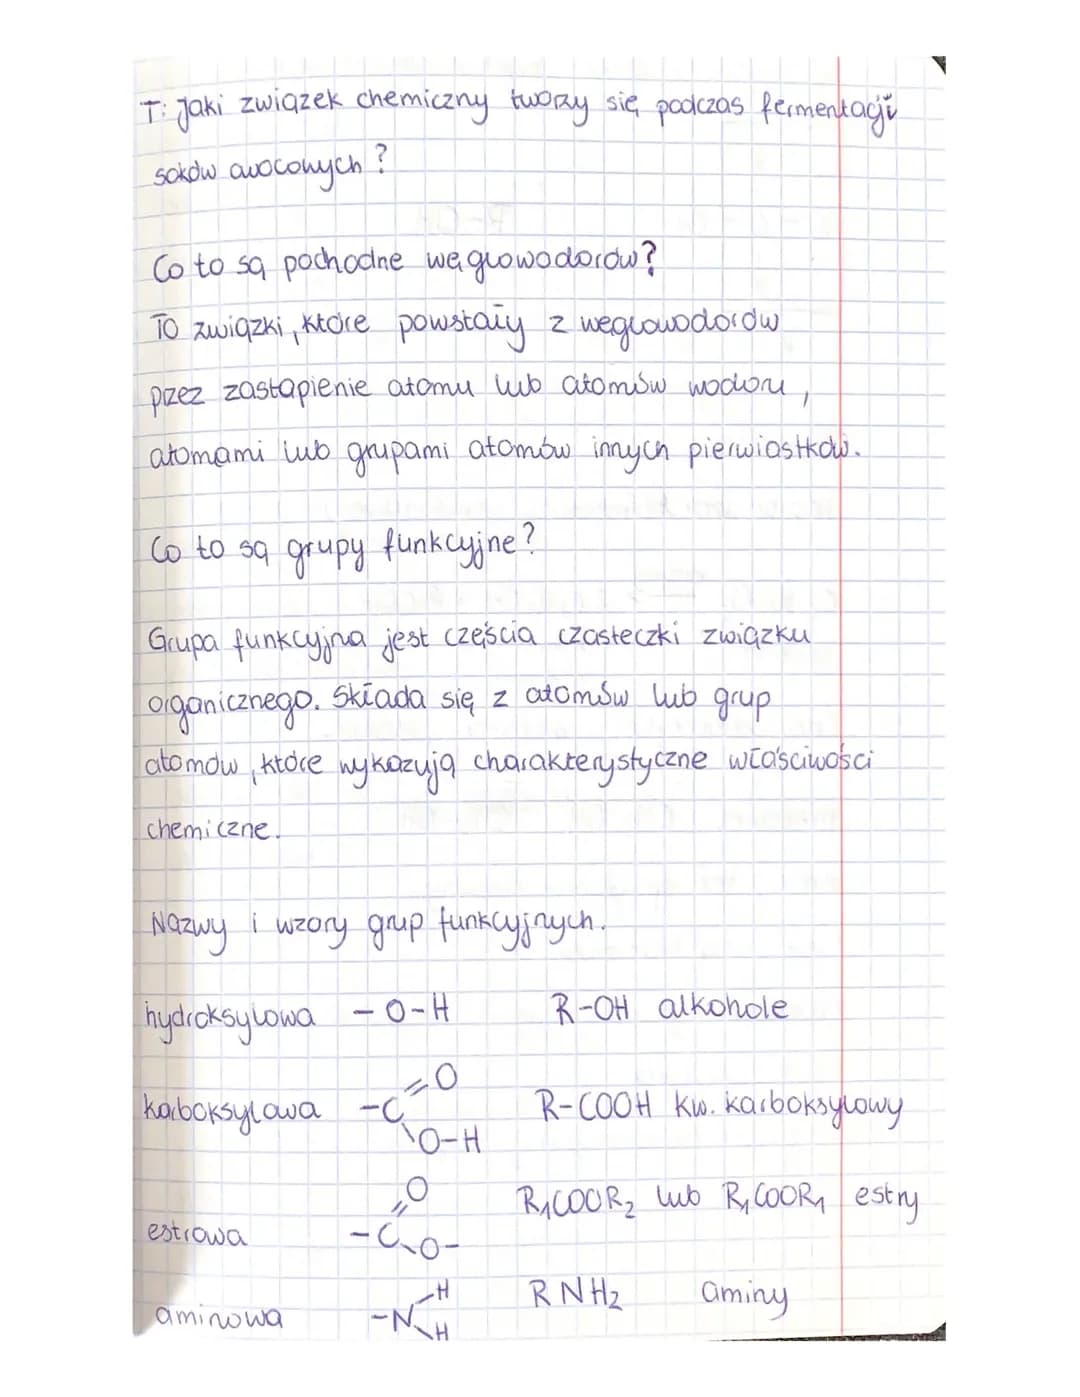 T: Jaki związek chemiczny tworzy się podczas fermentacji
soków owocowych?
Co to są pochodne węglowodorów?
To związki, które powstały z węglowodorów
przez zastąpienie atomu lub atomów wodoru,
atomami lub grupami atomów innych pierwiastków.
Co to są grupy funkcyjne?
Grupa funkcyjna jest częścia cząsteczki związku
organicznego. Składa się z atomów lub grup
atomów, które wykazują charakterystyczne właściwości
chemiczne.
Nazwy i wzory grup funkcyjnych.
hydroksylowa -O-H R-OH alkohole
=O
karboksylowa -C R-COOH kw. karboksylowy
\O-H
=O R1COOR2 lub R1COOR1 estry
estrowa -C\O-
-H RNH2 aminy
aminowa -N\H